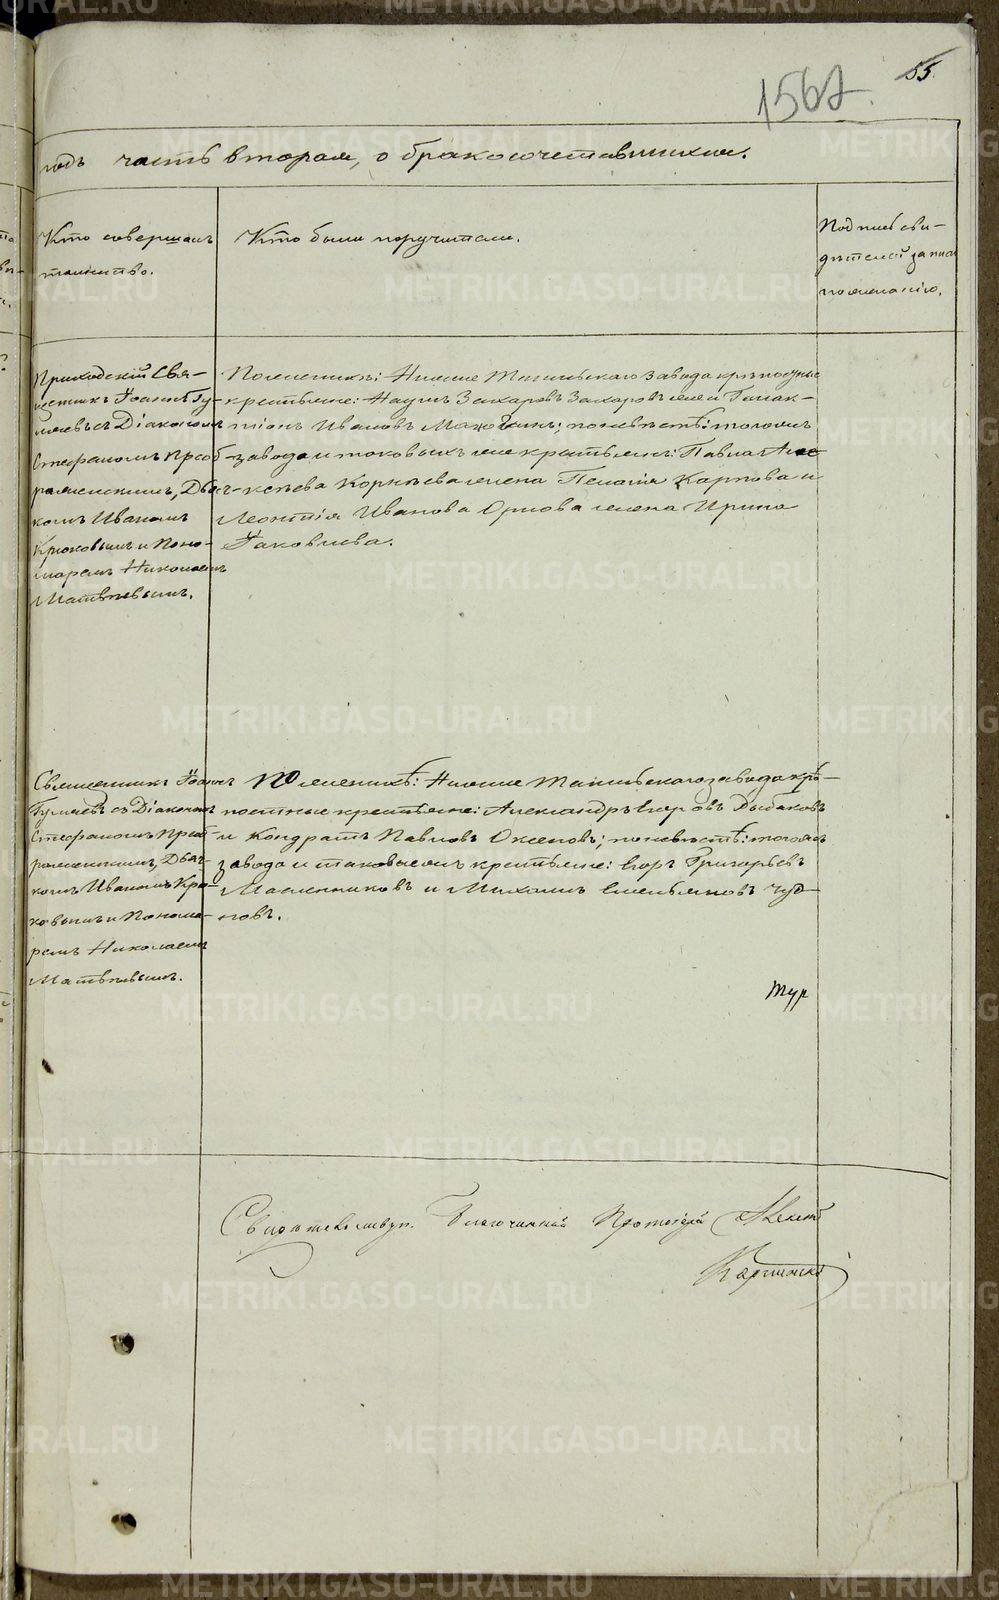 1567. 55.
годъ часть вторая, о бракосочетавшихся.
Кто совершалъ
таинство.
Кто были поручители.
Подпись сви-
дѣтелей записи
по желанію.
Приходскій Свя-
щенникъ Іоаннъ Гу-
съ Діакономъ
Стефаномъ Преоб-
раженскимъ, Дьяч-
комъ Иваномъ
Крюковымъ и Поно-
маремъ Николаемъ
Матвѣевымъ.
По женихѣ: Нижне Тагильскаго завода крѣпостные
крестьяне: Наумъ Захаровъ Захаровъ же и Галак-
тіонъ Ивановъ; по невѣстѣ: тогожъ
завода и таковыхъ же крестьянъ: Павла Але-
ксѣева Корнѣева жена Пелагія Карпова и
Леонтія Иванова Орлова жена Ирина
Яковлева.
Священникъ Іоаннъ
съ Діакономъ
Стефаномъ Преоб-
раженскимъ, Дьяч-
комъ Иваномъ Крю-
ковымъ и Понома-
ремъ Николаемъ
Матвѣевымъ.
По женихѣ: Нижне Тагильскаго завода крѣ-
постные крестьяне: Александръ Егоровъ Рыбаковъ
и Кондратъ Павловъ Оксеновъ; по невѣстѣ: тогожъ
завода и таковыежъ крестьяне: Егоръ Григорьевъ
Масленниковъ и Михаилъ Емельяновъ Чуд-
новъ.
Тур
Свидѣтельствуя. Благочинный Протоіерей
METRIKI.GASO-URAL.RU